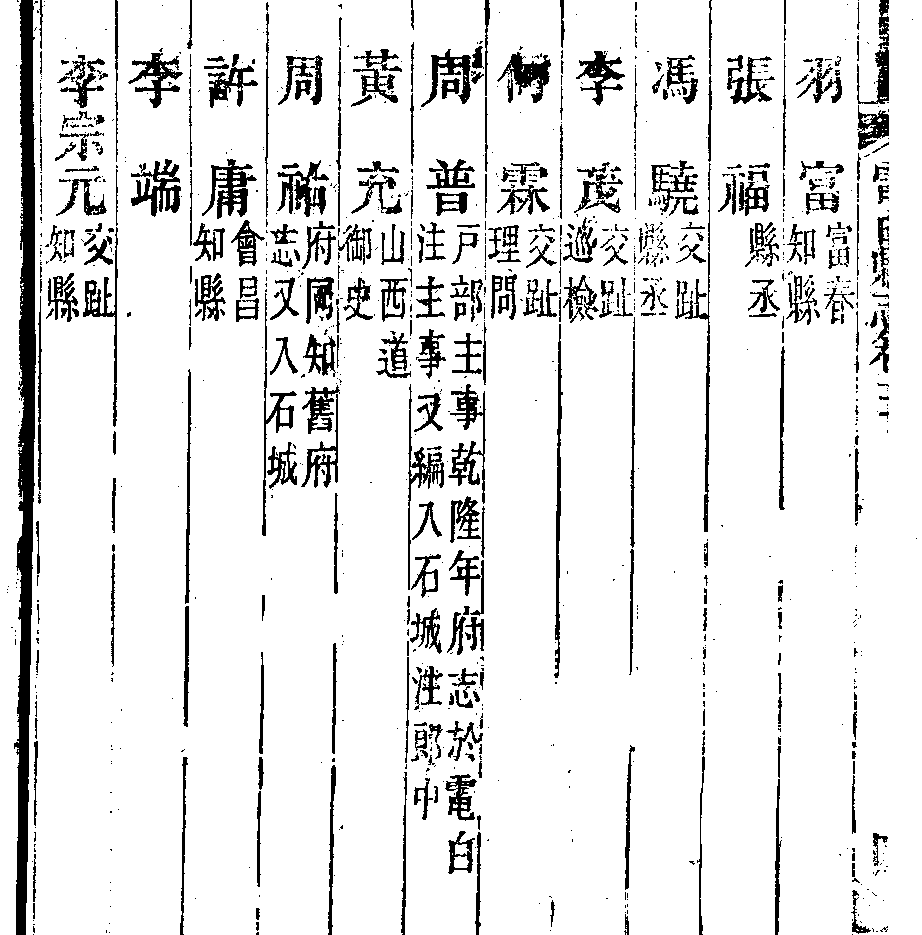 電白縣志卷二十
羽富 富春知縣
張福 縣丞
馮驍 交趾縣丞
李茂 交趾巡檢
何霖 交趾理問
周普 戶部主事乾隆年府志於電白注主事又編入石城注郎中
黃充 山西道御史
周祐 府同知舊府志又入石城
許庸 會昌知縣
李端
李宗元 交趾知縣